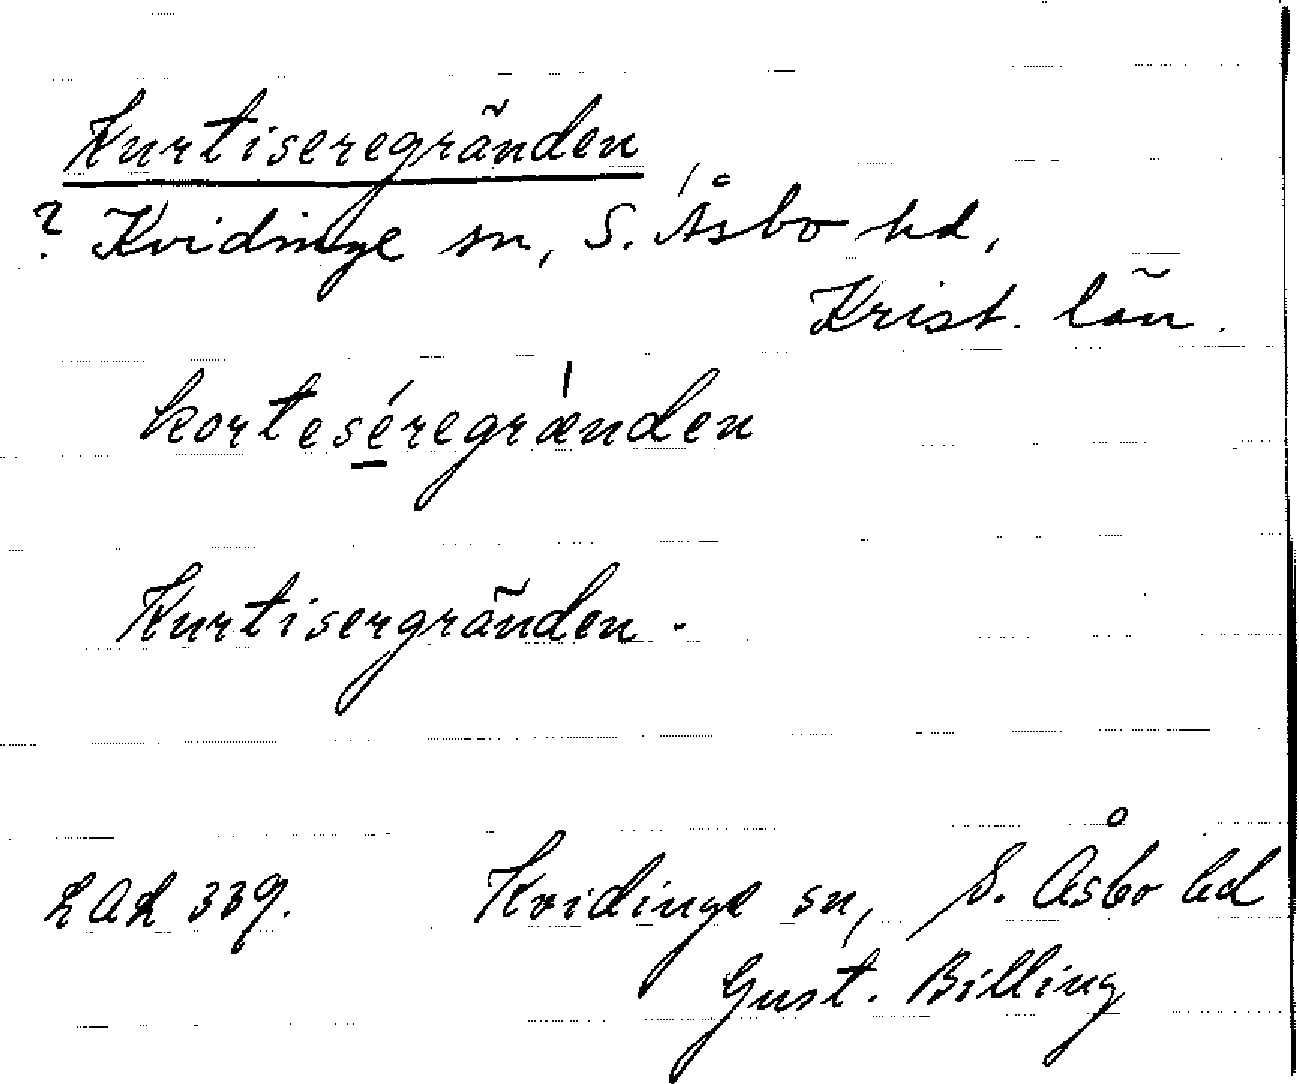 Kurtiseregränden
? Kvidinge sn, S. Åsbo hd,
Krist. län.
korteséregrænden
Kurtisergränden.
LAL 339. Kvidinge sn, S. Åsbo hd
Gust. Billing